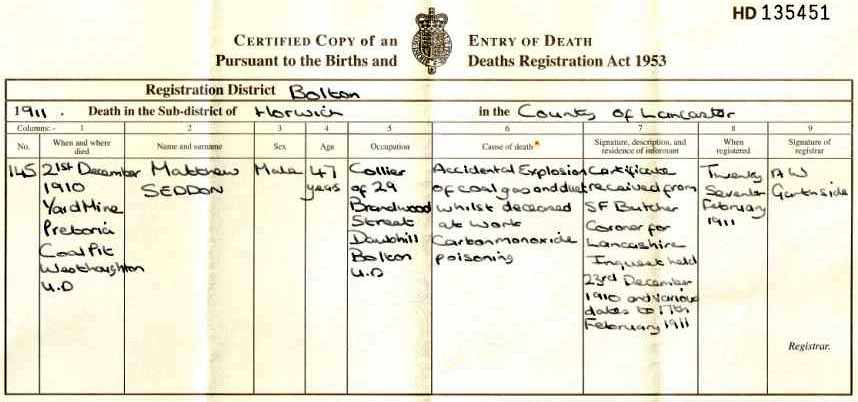 HD 135451
CERTIFIED COPY of an ENTRY OF DEATH
Pursuant to the Births and Deaths Registration Act 1953
Registration District Bolton
1911. Death in the Sub-district of Horwich in the County of Lancaster
Columns:- 1 2 3 4 5 6 7 8 9
No. When and where died Name and surname Sex Age Occupation Cause of death* Signature, description, and residence of informant When registered Signature of registrar
145
21st December
1910
Yard Mine
Pretoria
Coal Pit
Westhoughton
U.D
Matthew
SEDDON
Male
47
years
Collier
of 29
Brandwood
Street
Daubhill
Bolton
U.D
Accidental Explosion
of coal gas and dust
whilst deceased
at work
Carbon monoxide
poisoning
Certificate
received from
SF Butcher
Coroner for
Lancashire
Inquest held
23rd December
1910 and various
dates to 17th
February 1911
Twenty
Seventh
February
1911
A W
Garthside
Registrar.